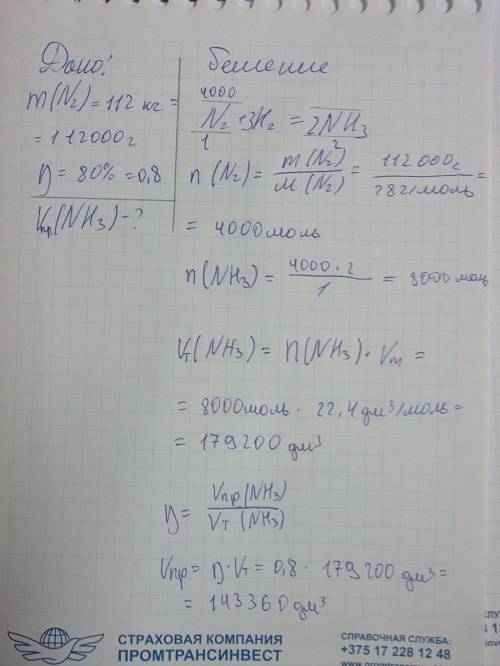 Дано:
m(N₂) = 112 кг =
= 112000г
η = 80% = 0,8
Vпр.(NH₃) - ?
Решение
4000
N₂ + 3H₂ = 2NH₃
1 2
n(N₂) = m(N₂) / M(N₂) = 112 000г / 28г/моль =
= 4000моль
n(NH₃) = 4000 · 2 / 1 = 8000 моль
Vт(NH₃) = n(NH₃) · Vm =
= 8000моль · 22,4 дм³/моль =
= 179200 дм³
η = Vпр(NH₃) / Vт (NH₃)
Vпр = η · Vт = 0,8 · 179200 дм³ =
= 143360 дм³
СТРАХОВАЯ КОМПАНИЯ
ПРОМТРАНСИНВЕСТ
СПРАВОЧНАЯ СЛУЖБА:
+375 17 228 12 48